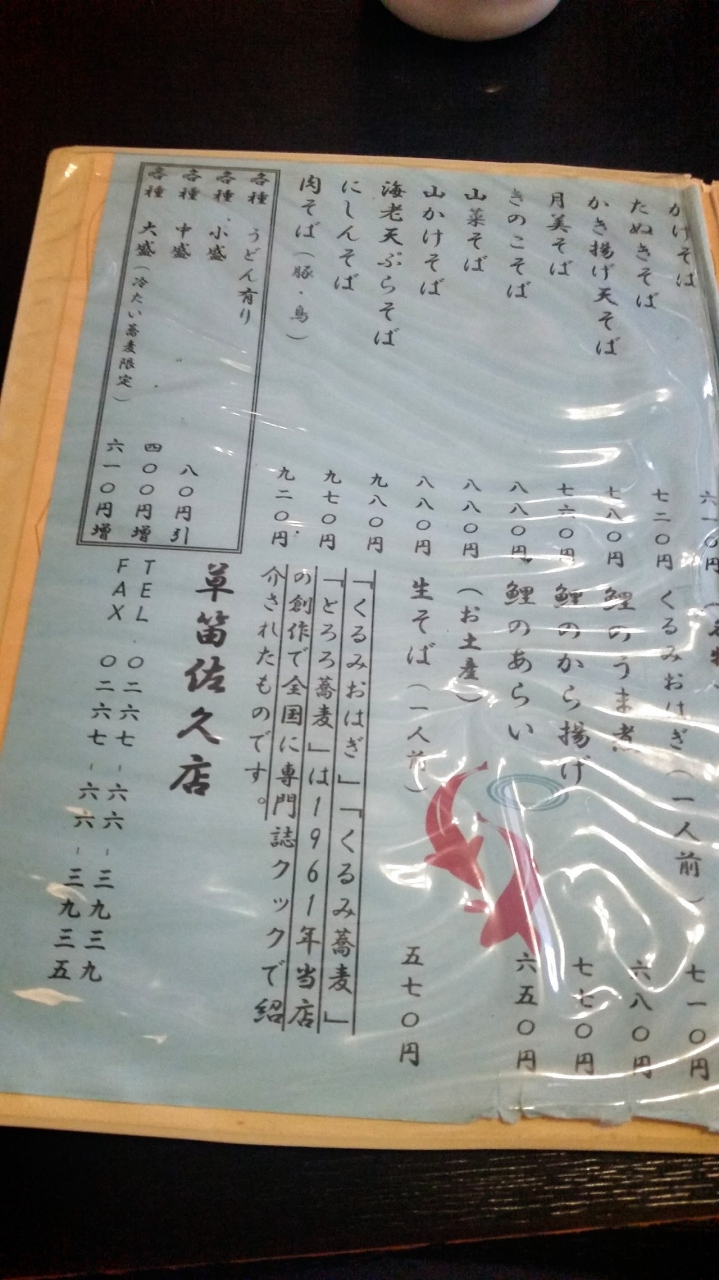 かけそば 六一〇円
たぬきそば 七二〇円
かき揚げ天そば 七八〇円
月美そば 七六〇円
きのこそば 八八〇円
山菜そば 八八〇円
山かけそば 八八〇円
海老天ぷらそば 九八〇円
にしんそば 九七〇円
肉そば(豚・鳥) 九二〇円
各種 うどん有り
各種 小盛 八〇円引
各種 中盛 四〇〇円増
各種 大盛(冷たい蕎麦限定) 六一〇円増
くるみおはぎ(一人前) 七一〇円
鯉のうま煮 六八〇円
鯉のから揚げ 七七〇円
鯉のあらい 六五〇円
(お土産)
生そば(一人前) 五七〇円
「くるみおはぎ」「くるみ蕎麦」
「とろろ蕎麦」は1961年当店
の創作で全国に専門誌クックで紹
介されたものです。
草笛佐久店
TEL 〇二六七-六六-三九三九
FAX 〇二六七-六六-三九三五